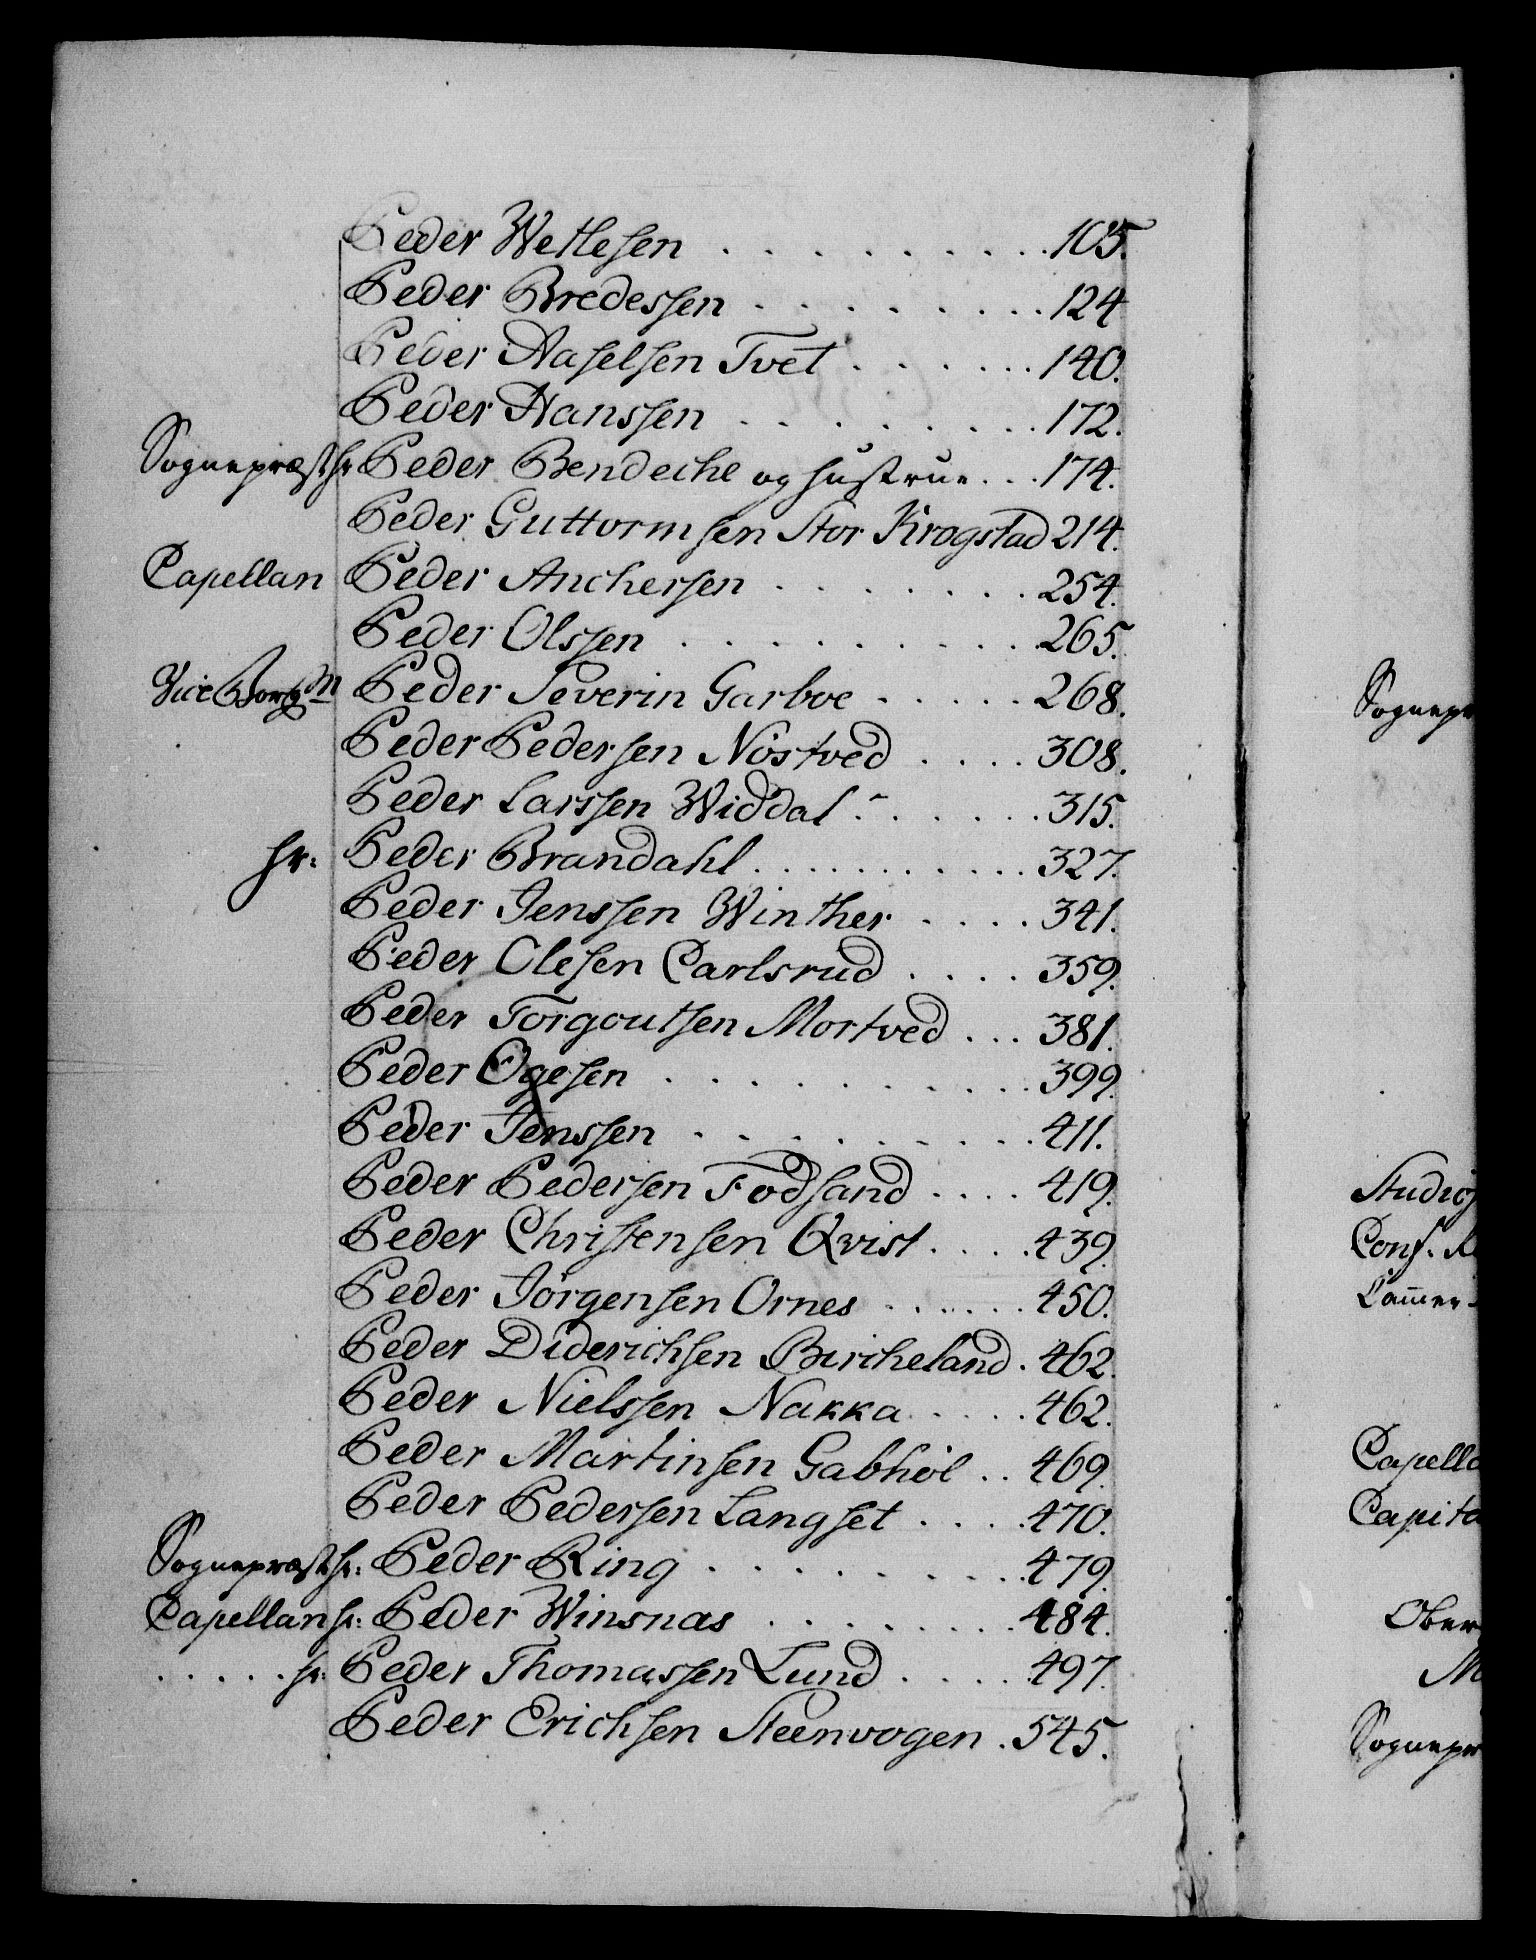 Peder Wetlesen . . . . . . . 105.
Peder Bredessen . . . . . . 124
Peder Aaselsen Tvet . . . . . . 140.
Peder Hanssen . . . . . . . 172.
Sognepræst hr Peder Bendeche og hustrue . . . 174.
Peder Guttormsen Stor Krogstad 214.
Capellan Peder Anchersen . . . . . . 254.
Peder Olssen . . . . . . . . 265.
Vice Borgm Peder Severin Garboe . . . . . 268.
Peder Pedersen Nöstved . . . . 308.
Peder Larssen Widdal . . . . . . 315.
hr: Peder Brandahl . . . . . . . . . . 327.
Peder Jenssen Winther . . . . 341.
Peder Olesen Carlsrud . . . . 359.
Peder Torgoutsen Mortved . . . 381.
Peder Ogesen . . . . . . . . 399.
Peder Jenssen . . . . . . . . 411.
Peder Pedersen Fodsand . . . . 419.
Peder Christensen Qvist . . . . 439.
Peder Jörgensen Ornes . . . . . . 450.
Peder Diderichsen Bircheland . 462.
Peder Nielssen Nakka . . . . . 462.
Peder Martinsen Gabhöl . . 469.
Peder Pedersen Langset . . . . 470.
Sognepræst hr: Peder Ring . . . . . . . 479.
Capellan hr: Peder Winsnas . . . . . . 484.
. . . . . hr: Peder Thomassen Lund . . . . 497.
Peder Erichsen Steenvogen . 545.
Sognepr
Studios
Conf. R
Cammer-
Capella
Capita
Ober
M
Sognepr